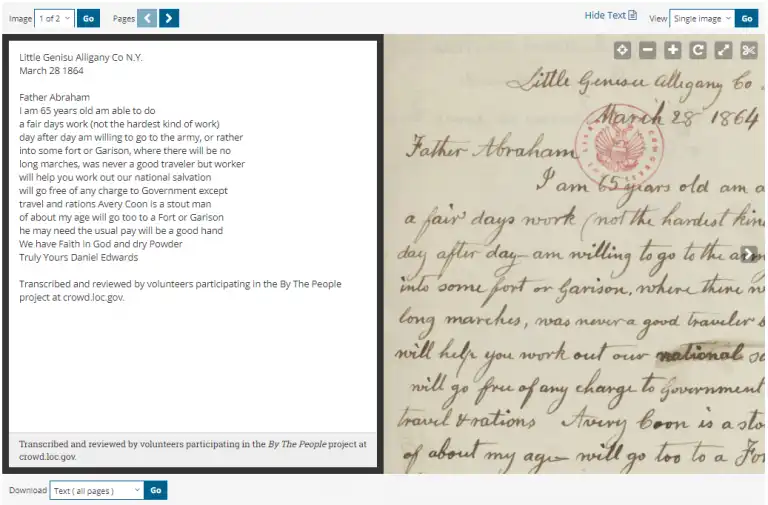 Image 1 of 2 Go Pages Hide Text View Single image Go
Little Genisu Alligany Co N.Y.
March 28 1864
Father Abraham
I am 65 years old am able to do
a fair days work (not the hardest kind of work)
day after day am willing to go to the army, or rather
into some fort or Garison, where there will be no
long marches, was never a good traveler but worker
will help you work out our national salvation
will go free of any charge to Government except
travel and rations Avery Coon is a stout man
of about my age will go too to a Fort or Garison
he may need the usual pay will be a good hand
We have Faith in God and dry Powder
Truly Yours Daniel Edwards
Transcribed and reviewed by volunteers participating in the By The People
project at crowd.loc.gov.
Transcribed and reviewed by volunteers participating in the By The People project at
crowd.loc.gov.
Download Text ( all pages ) Go
Little Genisee Allegany Co.
March 28 1864
Father Abraham
I am 65 years old am a
a fair days work (not the hardest kin
day after day am willing to go to the arm
into some fort or Garison, where there
long marches, was never a good traveler
will help you work out our national
will go free of any charge to Government
travel & rations Avery Coon is a sto
of about my age will go too to a For